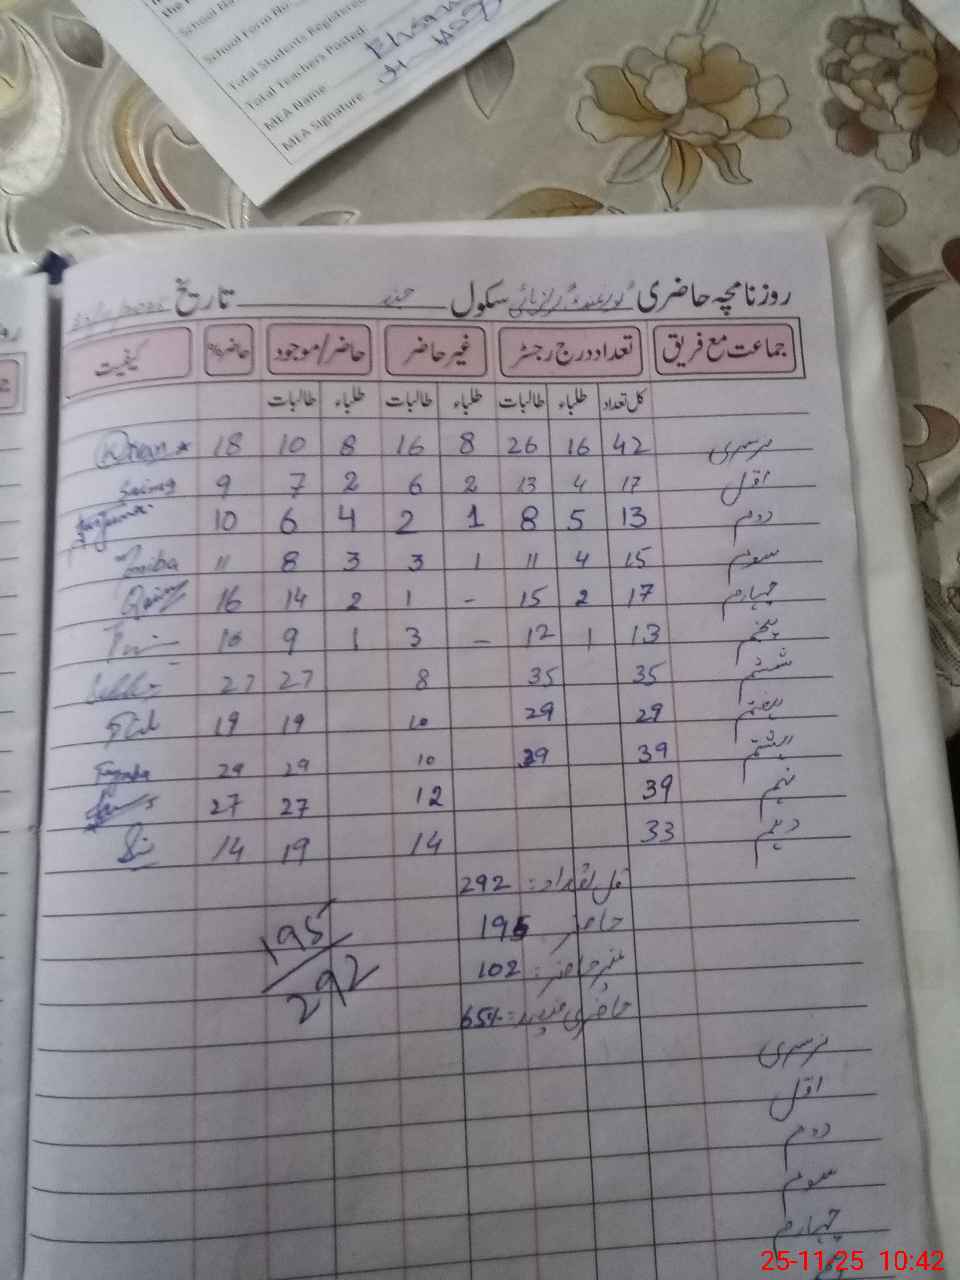 School Form No.
Total Students Registered
Total Teachers Posted:
MEA Name
MEA Signature
روزنامچہ حاضری سکول تاریخ
جماعت مع فریق تعداد درج رجسٹر غیر حاضر حاضر/موجود حاضر% کیفیت
کل تعداد طلباء طالبات طلباء طالبات طلباء طالبات
نرسری 42 16 26 8 16 8 10 18
اول 17 4 13 2 6 2 7 9
دوم 13 5 8 1 2 4 6 10
سوم 15 4 11 1 3 3 8 11 Zaiba
چہارم 17 2 15 - 1 2 14 16
پنجم 13 1 12 - 3 1 9 10
ششم 35 35 8 27 27
ہفتم 29 29 10 19 19
ہشتم 39 39 10 29 29
نہم 39 12 27 27
دہم 33 14 19 14
کل تعداد: 292
حاضر 195
غیر حاضر: 102
حاضری فیصد: 65%
195
292
نرسری
اول
دوم
سوم
چہارم
25-11-25 10:42